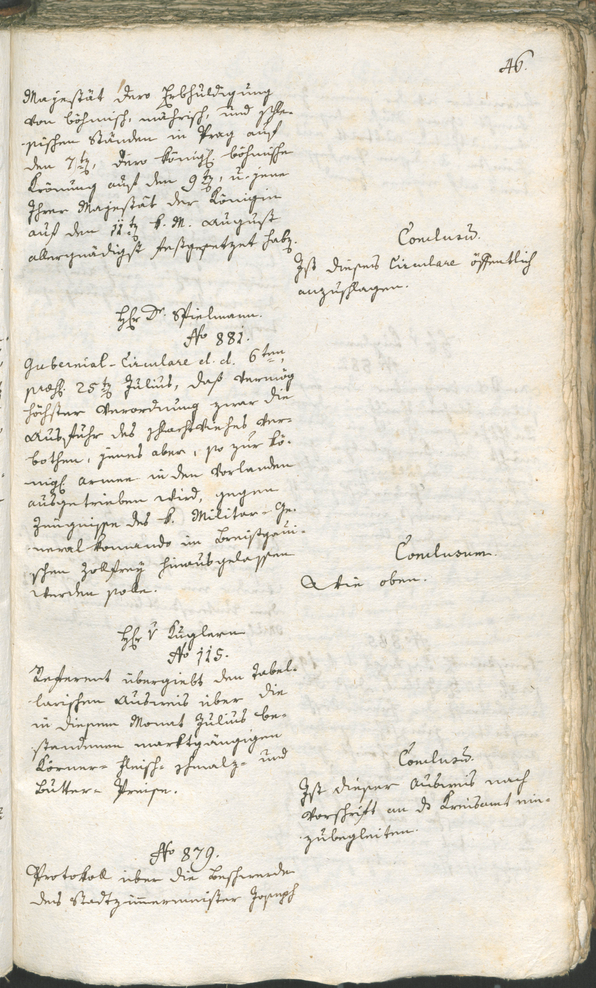 46.
Majestät dero Erbhuldigung
von böhmisch, mährisch, und schle-
sischen Ständen in Prag auf
den 7tn, dero königl. böhmische
Krönung auf den 9tn, u. jene
Ihrer Majestät der Königin
auf den 11tn k. M. August
allergnädigst festgesetzet hab.
Conclusu.
Ist dieses Circulare öffentlich
anzuschlagen.
Hr. Dr. Spielmann.
No 881.
Gubernial-Circulare d. d. 6ten,
præs. 25tn Julius, daß vermög
höchster Verordnung zwar die
Ausfuhr des Schlachtviehes ver-
bothen, jenes aber, so zur kö-
nigl. Armee in den Vorlanden
ausgetrieben wird, gegen
Zeugnisse des k. Militar-Ge-
neralkomando im Breisgaui-
schen Zollfrey hinausgelassen
werden solle.
Conclusum.
Wie oben.
Hr. v. Kuglern
No 115.
Referent übergiebt den Tabel-
larischen Ausweis über die
in diesem Monat Julius be-
standenen marktgängigen
Körner- Fleisch- Schmalz- und
Butter- Preise.
Conclusu.
Ist dieser Ausweis nach
Vorschrift an ds Kreisamt ein-
zubegleiten.
No 879.
Protokoll über die Beschwerde
des Stadtzimmermeister Joseph